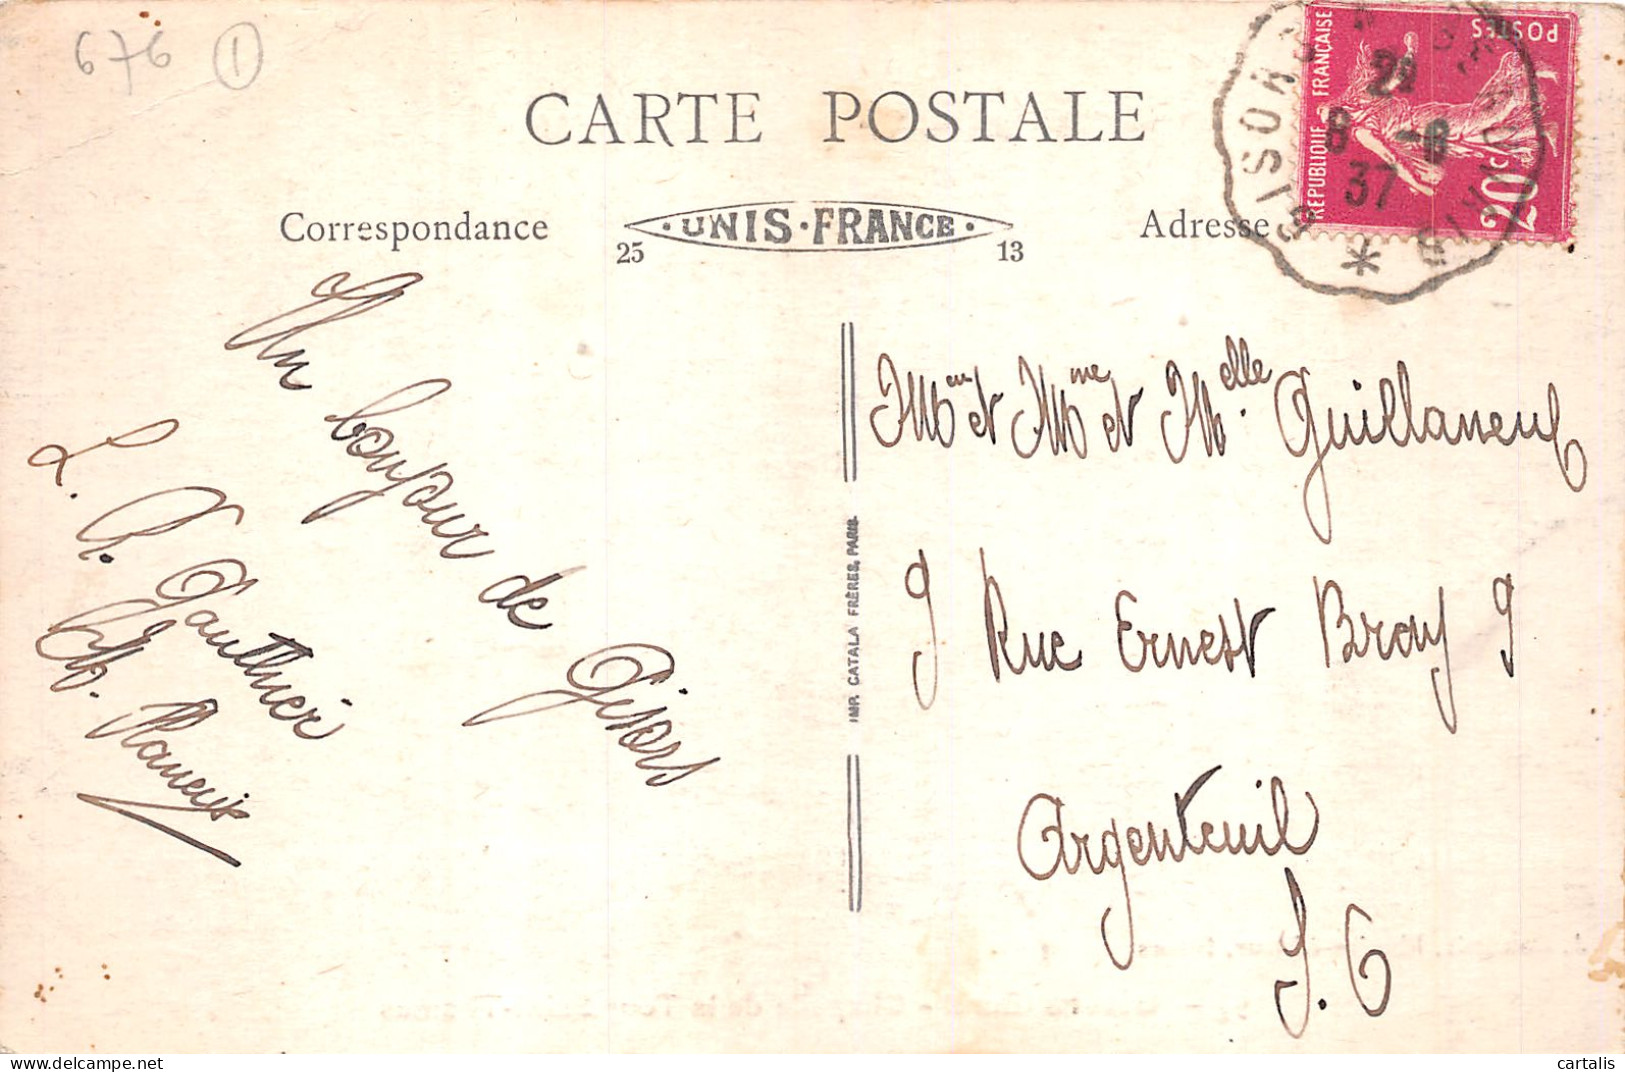 676 1
CARTE POSTALE
Correspondance
· UNIS · FRANCE ·
25 13
Adresse
RÉPUBLIQUE FRANÇAISE
POSTES
20c
GISORS
8 -8
37
Un bonjour de Gisors
L. R. Gauthier
IMP. CATALA FRÈRES, PARIS.
Mr et Mme et Melle. Guillaneuf
9 Rue Ernest Bray 9
Argenteuil
S. O
cartalis